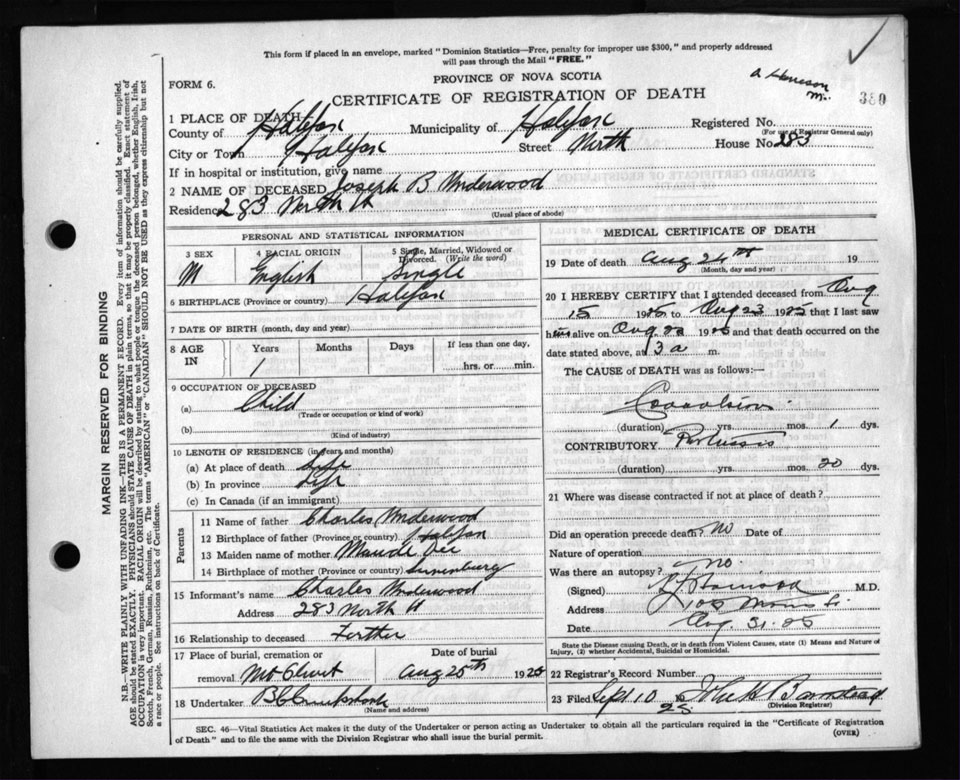 This form if placed in an envelope, marked "Dominion Statistics—Free, penalty for improper use $300," and properly addressed
will pass through the Mail "FREE."
FORM 6.
PROVINCE OF NOVA SCOTIA
380
CERTIFICATE OF REGISTRATION OF DEATH
1 PLACE OF DEATH—
County of Halifax Municipality of Halifax Registered No.
(For use of Registrar General only)
City or Town Halifax Street North House No. 283
If in hospital or institution, give name
2 NAME OF DECEASED Joseph B Underwood
Residence 283 North St
(Usual place of abode)
PERSONAL AND STATISTICAL INFORMATION
3 SEX 4 RACIAL ORIGIN 5 Single, Married, Widowed or
Divorced. (Write the word)
M English Single
6 BIRTHPLACE (Province or country) Halifax
7 DATE OF BIRTH (month, day and year)
8 AGE IN Years Months Days If less than one day,
1 hrs. or min.
9 OCCUPATION OF DECEASED
(a) Child
(Trade or occupation or kind of work)
(b)
(Kind of industry)
10 LENGTH OF RESIDENCE (in years and months)
(a) At place of death Life
(b) In province Life
(c) In Canada (if an immigrant)
Parents
11 Name of father Charles Underwood
12 Birthplace of father (Province or country) Halifax
13 Maiden name of mother Maude
14 Birthplace of mother (Province or country) Lunenburg
15 Informant's name Charles Underwood
Address 283 North St
16 Relationship to deceased Farther
17 Place of burial, cremation or Date of burial
removal Mt Olivet Aug 25th 1925
18 Undertaker
(Name and address)
MEDICAL CERTIFICATE OF DEATH
19 Date of death Aug 24th 19
(Month, day and year)
20 I HEREBY CERTIFY that I attended deceased from Aug
15 1925 to Aug 23 1925 that I last saw
him alive on Aug 22 1925 and that death occurred on the
date stated above, at 3 a m.
The CAUSE of DEATH was as follows:—
Convulsions
(duration) yrs. mos. 1 dys.
CONTRIBUTORY Pertussis
(duration) yrs. mos. 20 dys.
21 Where was disease contracted if not at place of death?
Did an operation precede death? No Date of
Nature of operation
Was there an autopsy? no.
(Signed) M.D.
Address Morris St.
Date Aug. 31. 25
State the Disease causing Death, or in death from Violent Causes, state (1) Means and Nature of
Injury, (2) whether Accidental, Suicidal or Homicidal.
22 Registrar's Record Number
23 Filed Sept 10 1925 John H Barnstead
(Division Registrar)
SEC. 46—Vital Statistics Act makes it the duty of the Undertaker or person acting as Undertaker to obtain all the particulars required in the "Certificate of Registration
of Death" and to file the same with the Division Registrar who shall issue the burial permit.
(OVER)
MARGIN RESERVED FOR BINDING
N.B.—WRITE PLAINLY WITH UNFADING INK—THIS IS A PERMANENT RECORD. Every item of information should be carefully supplied.
AGE should be stated EXACTLY. PHYSICIANS should STATE CAUSE OF DEATH in plain terms, so that it may be properly classified. Exact statement of
OCCUPATION is very important. RACIAL ORIGIN will be described by stating to what people or tongue the deceased person belonged, whether English, Irish,
Scotch, French, German, Russian, Ruthenian, etc. The terms "AMERICAN" or "CANADIAN" SHOULD NOT BE USED as they express citizenship but not
a race or people. See instructions on back of Certificate.